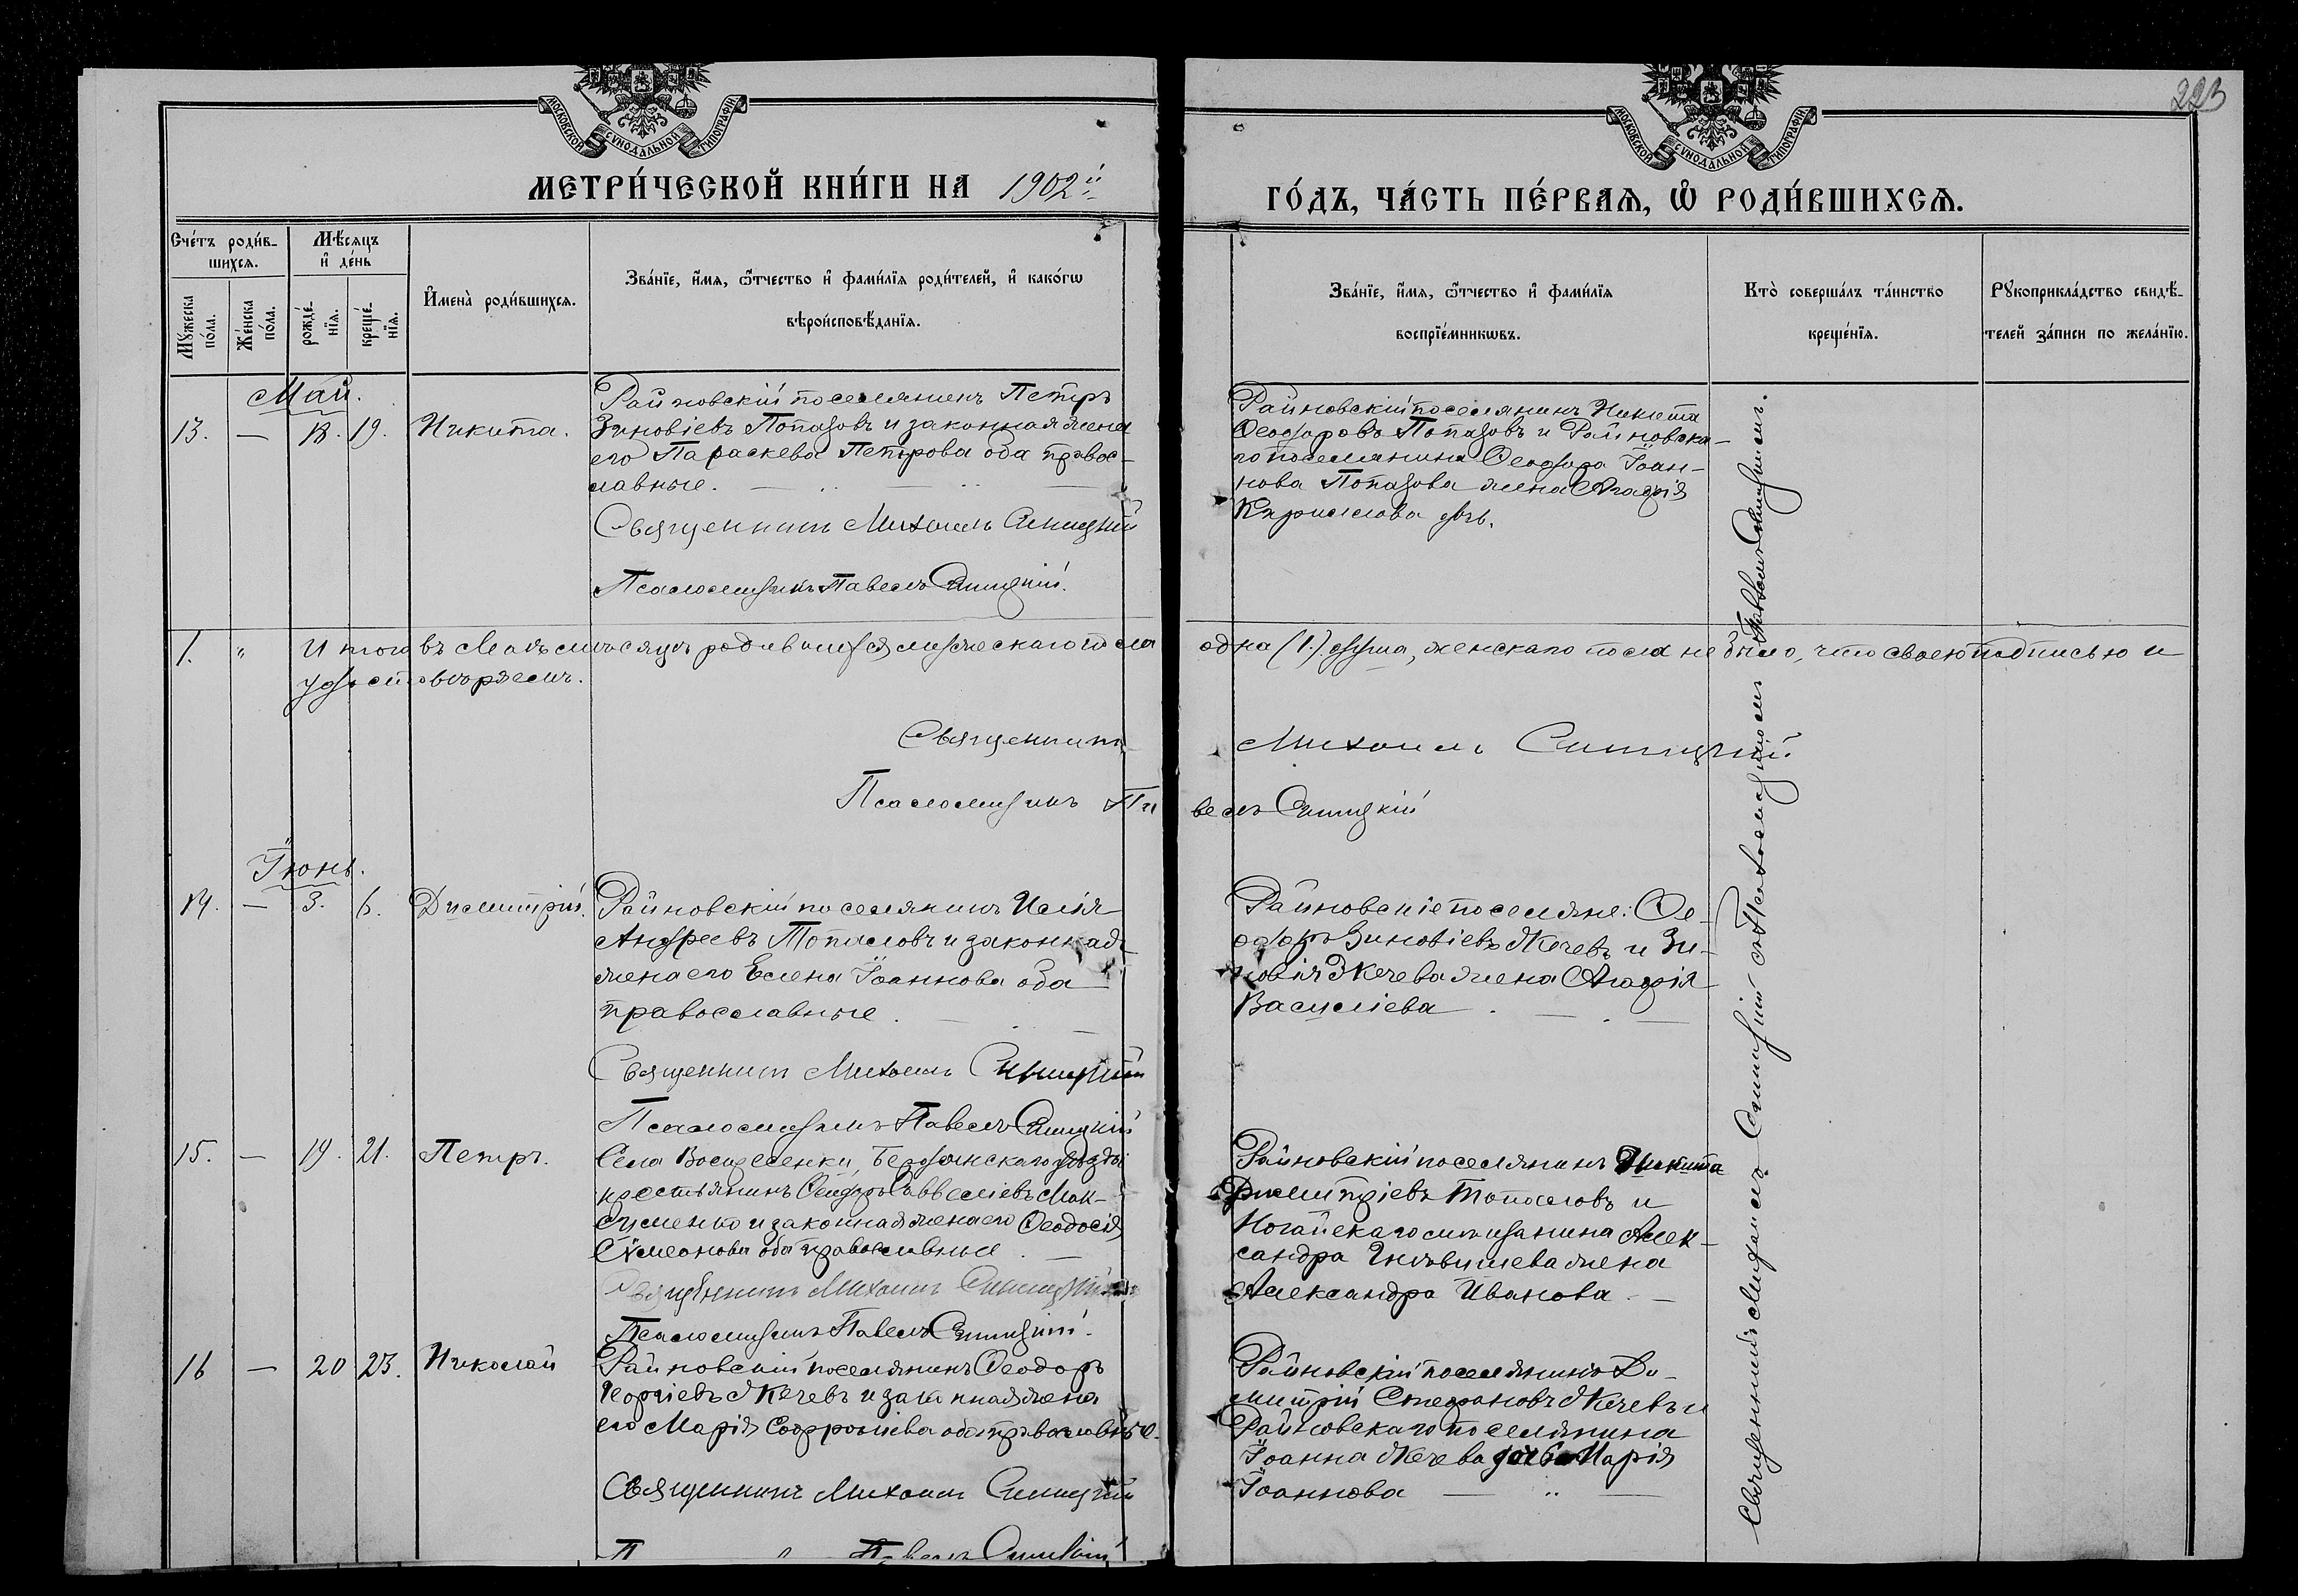 223
МОСКОВСКОЙ СѴНОДАЛЬНОЙ ТИПОГРАФІИ
МОСКОВСКОЙ СѴНОДАЛЬНОЙ ТИПОГРАФІИ
МЕТРИ́ЧЕСКОЙ КНИ́ГИ НА 1902й
ГО́ДЪ, ЧА́СТЬ ПЕ́РВАЯ, Ѡ҆ РОДИ́ВШИХСѦ.
Сче́тъ роди́в-
шихсѧ.
Мꙋ́жеска по́ла.
Же́нска по́ла.
Мѣ́сѧцъ
и҆ де́нь
рожде́-
нїѧ.
креще́-
нїѧ.
И҆мена̀ роди́вшихсѧ.
Зва́нїе, и҆́мѧ, ѻ҆́тчество и҆ фами́лїѧ роди́телей, и҆ како́гѡ
вѣроисповѣ́данїѧ.
Зва́нїе, и҆́мѧ, ѻ҆́тчество и҆ фами́лїѧ
воспрїе́мникѡвъ.
Кто̀ соверша́лъ та́инство
креще́нїѧ.
Рꙋкоприкла́дство свидѣ́-
телей за́писи по жела́нїю.
Май.
13. — 18. 19. Никита.
Райновскій поселянинъ Петръ
Зиновіевъ Топаловъ и законная жена
его Параскева Петрова оба правос-
лавные.
Священникъ Михаилъ Синицкій
Псаломщикъ Павелъ Синицкій.
Райновскій поселянинъ Никита
Ѳеодоровъ Топаловъ и Райновска-
го поселянина Ѳеодора Іоан-
нова Топалова жена Агафія
Кириллова
1. " Итого въ Маѣ мѣсяцѣ родившихся мужескаго пола одна (1.) душа, женскаго пола не было, что своею подписью и
удостовѣряемъ.
Священникъ Михаилъ Синицкій
Псаломщикъ Павелъ Синицкій
Іюнь.
14. — 3. 6. Димитрій.
Райновскій поселянинъ Илія
Андреевъ Топаловъ и законная
жена его Елена Іоаннова оба
православные.
Священникъ Михаилъ Синицкій
Псаломщикъ Павелъ Синицкій
Райновскіе поселяне: Ѳе-
одоръ Зиновіевъ Жечевъ и Зи-
новія Жечева жена Агафія
Василіева
15. — 19. 21. Петръ.
Села Воскресенки, Бердянскаго уѣзда
крестьянинъ Ѳеодоръ Савеліевъ Мак-
сименко и законная жена его Ѳеодосія
Симеонова оба православные
Священникъ Михаилъ Синицкій
Псаломщикъ Павелъ Синицкій.
Райновскій поселянинъ Никита
Димитріевъ Топаловъ и
Ногайскаго мѣщанина Алек-
сандра жена
Александра Иванова
16 — 20 23. Николай
Райновскій поселянинъ Ѳеодоръ
Георгіевъ Жечевъ и законная жена
его Марія Софроніева оба православные.
Священникъ Михаилъ Синицкій
Павелъ Синицкій
Райновскій поселянинъ Ди-
митрій Стефановъ Жечевъ и
Райновскаго поселянина
Іоанна Жечева дочь Марія
Іоаннова
Священникъ Михаилъ Синицкій съ Псаломщикомъ Павломъ Синицкимъ.